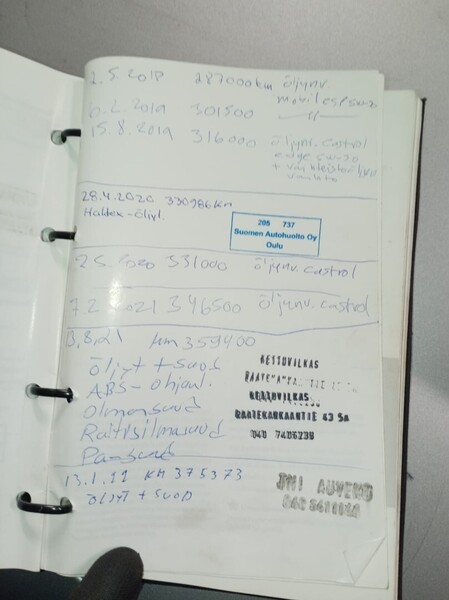 2.5.2018 287000km öljynv.
mobil esp 5w30
6.2.2019 301500 —"—
15.8.2019 316000 öljynv. castrol
edge 5w-30
+ vaihteistoöljyn
vaihto
28.4.2020 330986 KM
Haldex-öljyt.
205 737
Suomen Autohuolto Oy
Oulu
2.5.2020 331000 öljynv. castrol
7.2.2021 346500 öljynv. castrol
3,8,21 km 359400
öljyt + suod
ABS-ohjau.
Raitisilmasuod
KETTUVILKAS
KETTUVILKAS
RAATEKANKAANTIE 43 5a
040 7406239
13.1.22 KM 375373
öljyt + suod